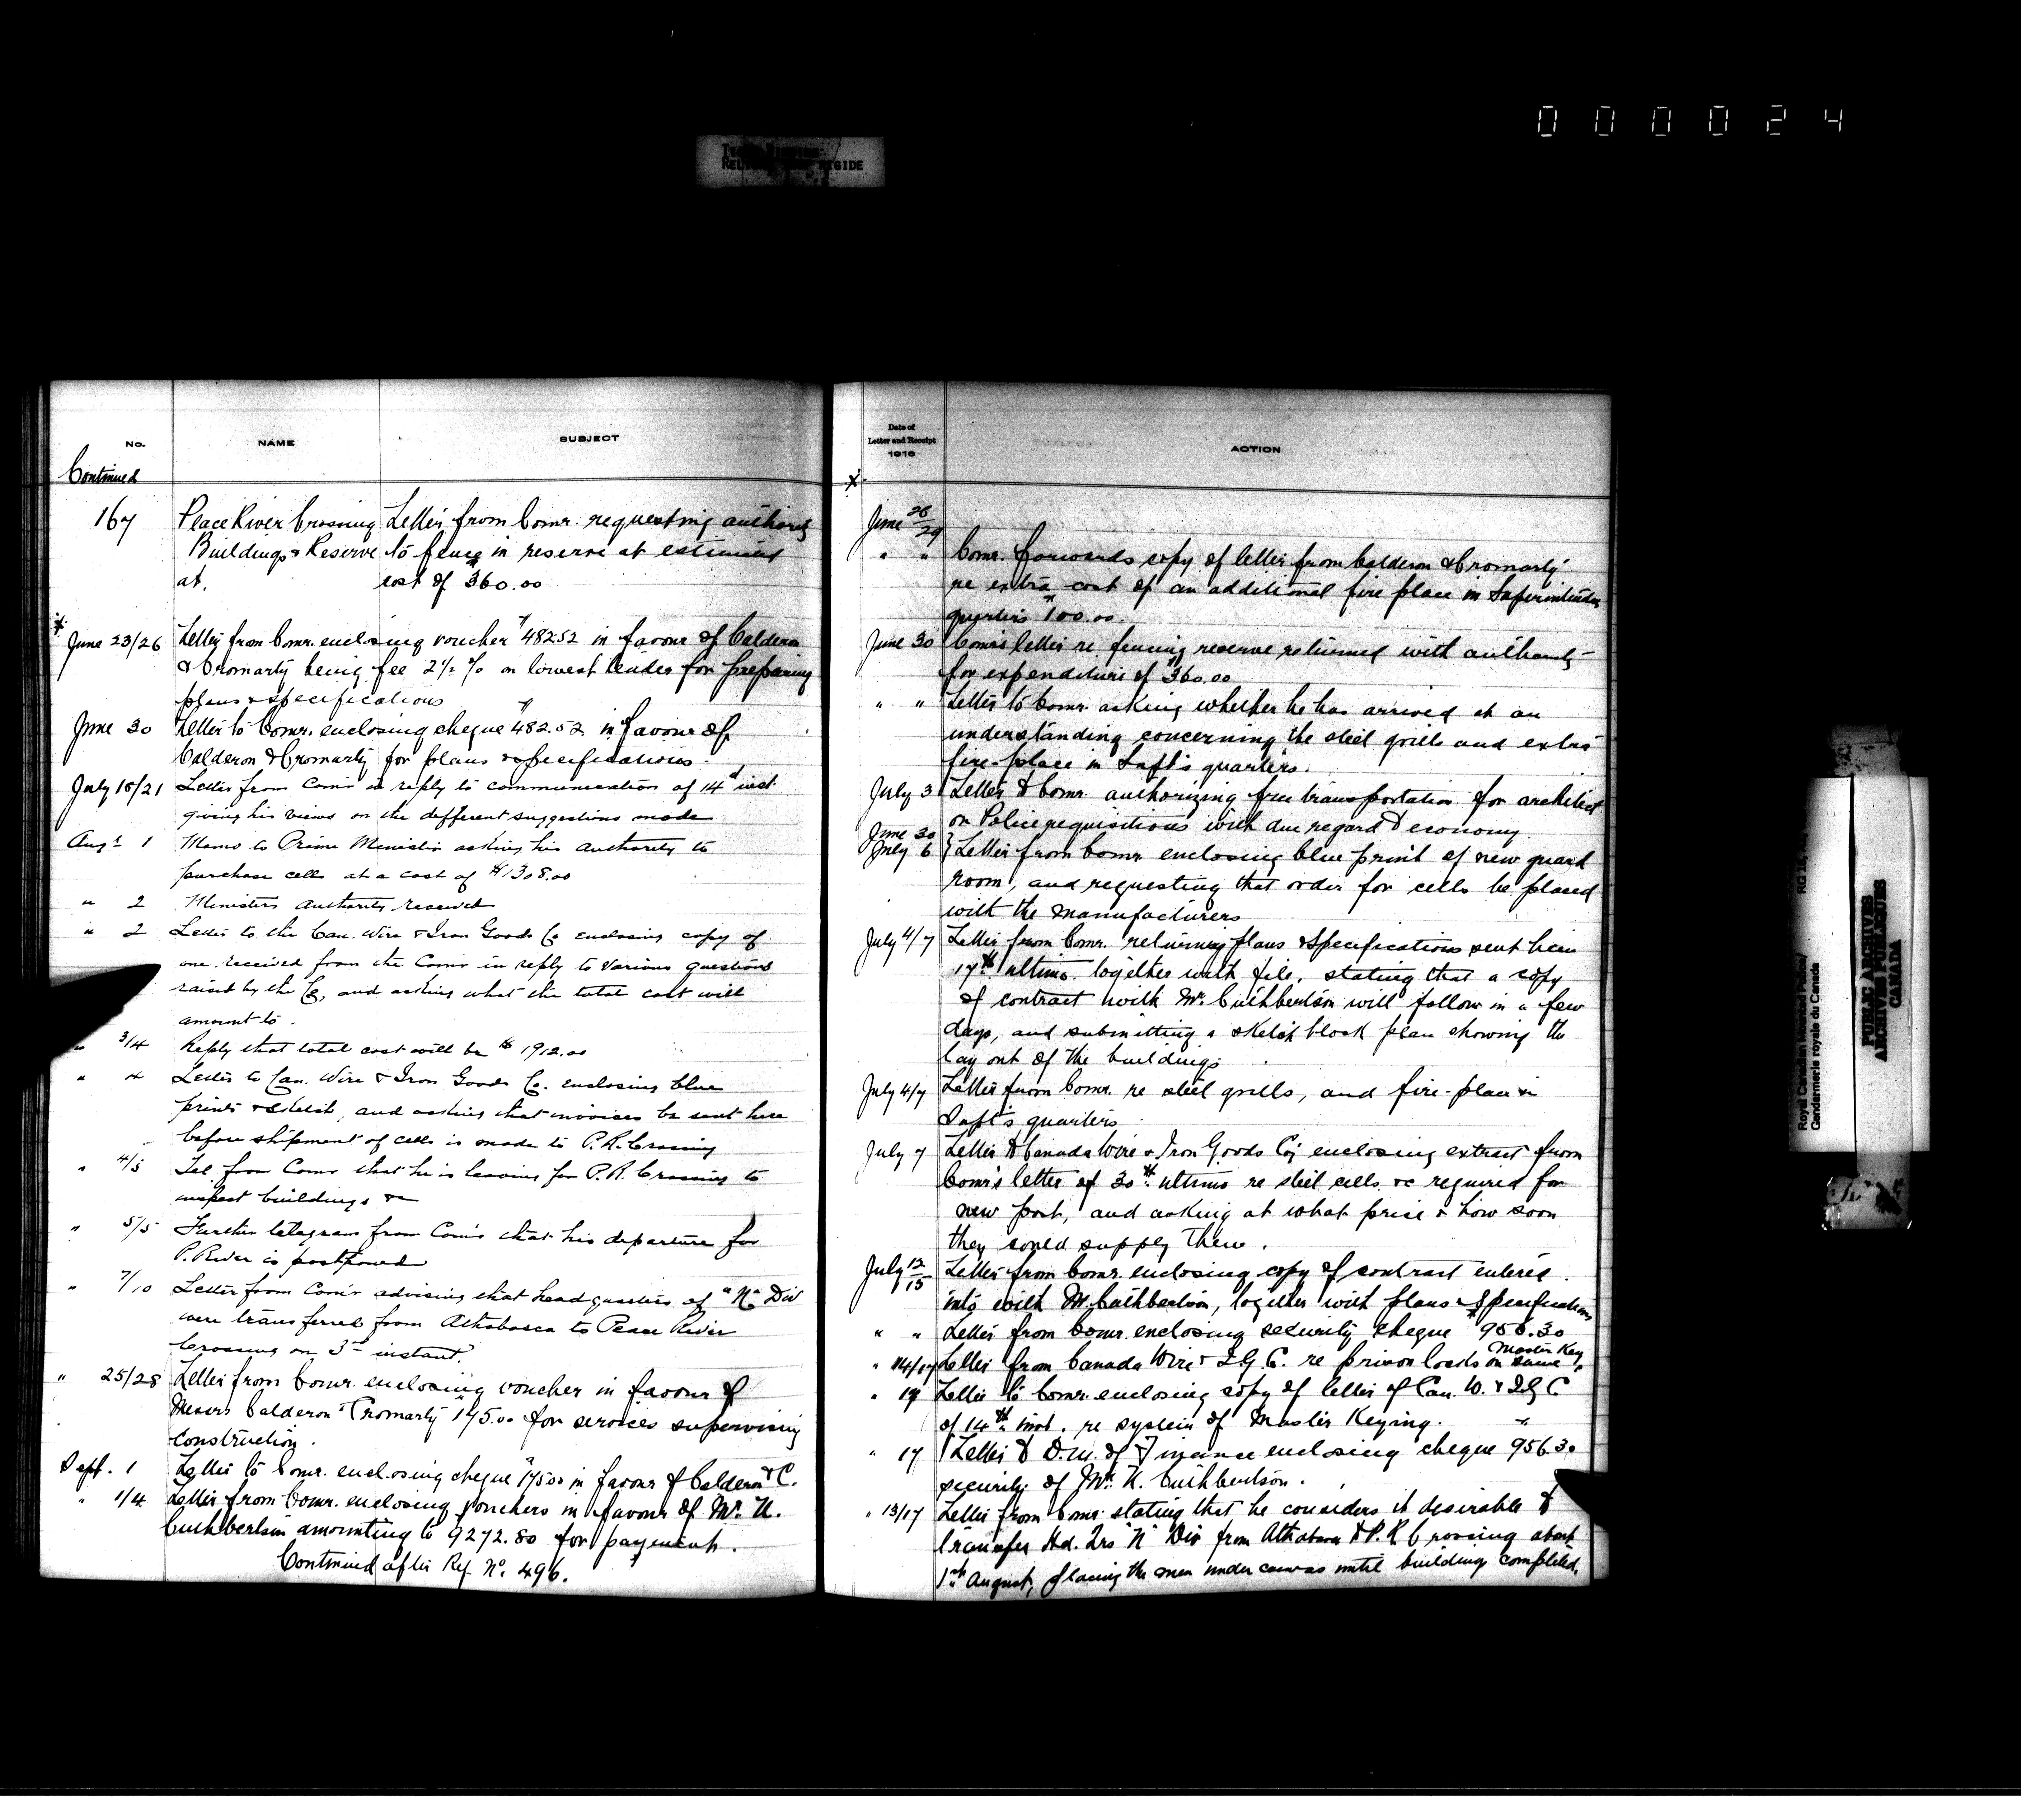 000024
No.
NAME
SUBJECT
Continued
167
Peace River Crossing
Buildings & Reserve
at.
Letter from Comr. requesting authority
to fence in reserve at estimated
cost of $360.00
June 23/26 Letter from Comr. enclosing voucher $482.52 in favour of Calderon
& Cromarty being fee 2½ % on lowest tender for preparing
plans & specifications
June 30 Letter to Comr. enclosing cheque $482.52 in favour of
Calderon & Cromarty for plans & specifications.
July 18/21 Letter from Comr in reply to communication of 14th inst
giving his views on the different suggestions made
Augt 1 Memo to Prime Minister asking his authority to
purchase cells at a cost of $1308.00
" 2 Ministers authority received
" 2 Letter to the Can. Wire & Iron Goods Co enclosing copy of
one received from the Comr in reply to various questions
raised by the Co, and asking what the total cost will
amount to.
" 3/4 Reply that total cost will be $1912.00
" 4 Letter to Can. Wire & Iron Goods Co. enclosing blue
prints & sketch, and asking that invoices be sent here
before shipment of cells is made to P.R. Crossing
" 4/5 Tel from Comr that he is leaving for P.R. Crossing to
inspect buildings &c
" 5/5 Further telegram from Comr that his departure for
P. River is postponed
" 7/10 Letter from Comr advising that headquarters of "N" Div
were transferred from Athabasca to Peace River
Crossing on 3rd instant.
" 25/28 Letter from Comr. enclosing voucher in favour of
Messrs Calderon & Cromarty 175.00 for services supervising
construction.
Sept. 1 Letter to Comr. enclosing cheque $175.00 in favour of Calderon & C.
" 1/4 Letter from Comr. enclosing vouchers in favour of Mr. H.
Cuthbertson amounting to 9272.80 for payment.
Continued after Ref. No. 496.
Date of
Letter and Receipt
1916
ACTION
June 26/29
" " Comr. forwards copy of letter from Calderon & Cromarty
re extra cost of an additional fire place in Superintendent
quarters $100.00.
June 30 Comr's letter re fencing reserve returned with authority
for expenditure of $360.00
" " Letter to Comr. asking whether he has arrived at an
understanding concerning the steel grills and extra
fire-place in Supt's quarters.
July 3 Letter to Comr. authorizing free transportation for architect
on Police requisitions with due regard to economy.
June 30
July 6 } Letter from Comr enclosing blue print of new guard
room, and requesting that order for cells be placed
with the manufacturers
July 4/7 Letter from Comr. returning plans & Specifications sent him
17th ultimo. together with file, stating that a copy
of contract with Mr. Cuthbertson will follow in a few
days, and submitting a sketch block plan showing the
lay out of the buildings
July 4/7 Letter from Comr. re steel grills, and fire-place in
Supt's quarters
July 7 Letter to Canada Wire & Iron Goods Co'y enclosing extract from
Comr's letter of 30th ultimo re steel cells &c required for
new post, and asking at what price & how soon
they could supply them.
July 12/15 Letter from Comr. enclosing copy of contract entered
into with Mr. Cuthbertson, together with plans & Specifications
" " Letter from Comr. enclosing security cheque $956.30
" 14/17 Letter from Canada Wire & I.G.C. re prison locks on same Master Key
" 17 Letter to Comr. enclosing copy of letter of Can. W. & I.G.C
of 14th inst. re system of Master Keying.
" 17 Letter to D.M. of Finance enclosing cheque $956.30
security of Mr. H. Cuthbertson.
" 13/17 Letter from Comr. stating that he considers it desirable to
transfer Hd. Qrs "N" Div from Athabasca to P.R. Crossing about
1st August, placing the men under canvas until buildings completed.
Royal Canadian Mounted Police/
Gendarmerie royale du Canada
PUBLIC ARCHIVES
ARCHIVES PUBLIQUES
CANADA